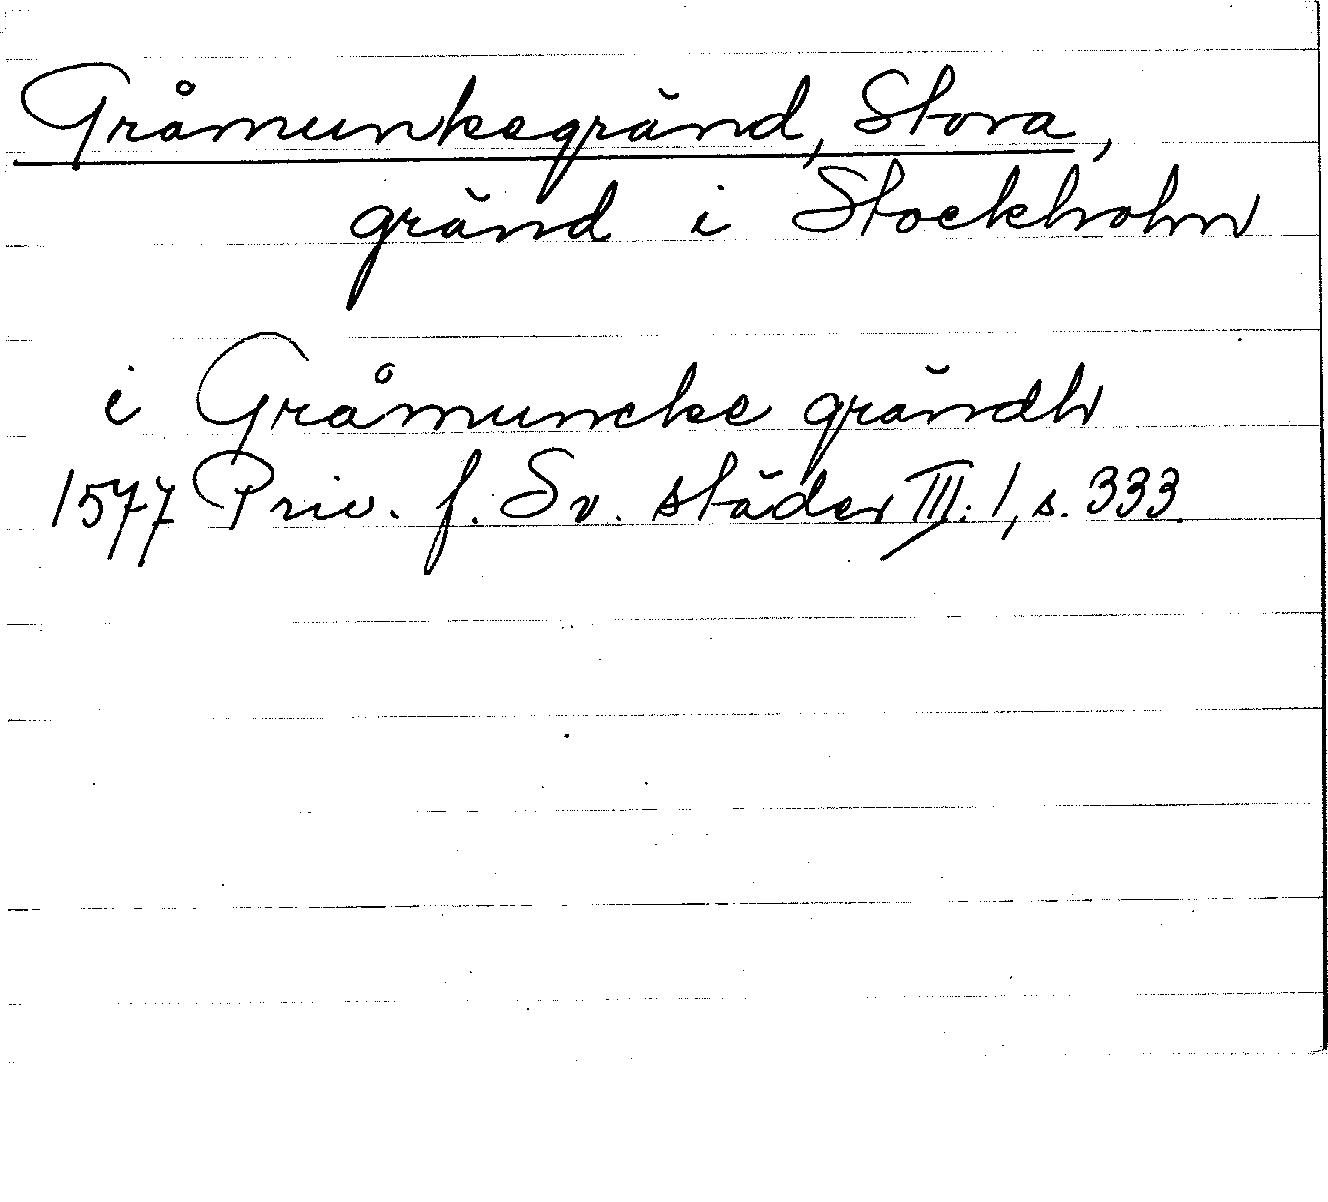 Gråmunkegränd, Stora,
gränd i Stockholm
i Gråmuncke grändh
1577 Priv. f. Sv. städer III: 1, s. 333.